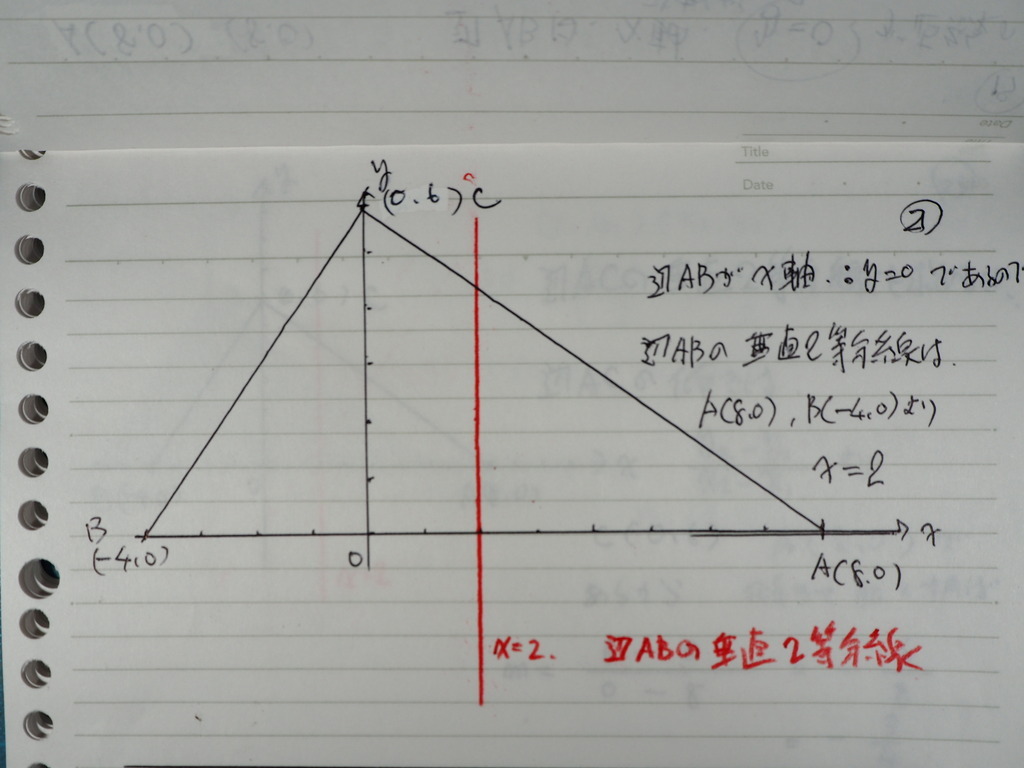 Title
Date
y
(0.6) C
②
辺ABが x軸 ∴ y=0 であるので
辺ABの 垂直2等分線は.
A(8.0), B(-4.0)より
x=2
B
(-4.0)
0
x
A(8.0)
x=2. 辺ABの垂直2等分線